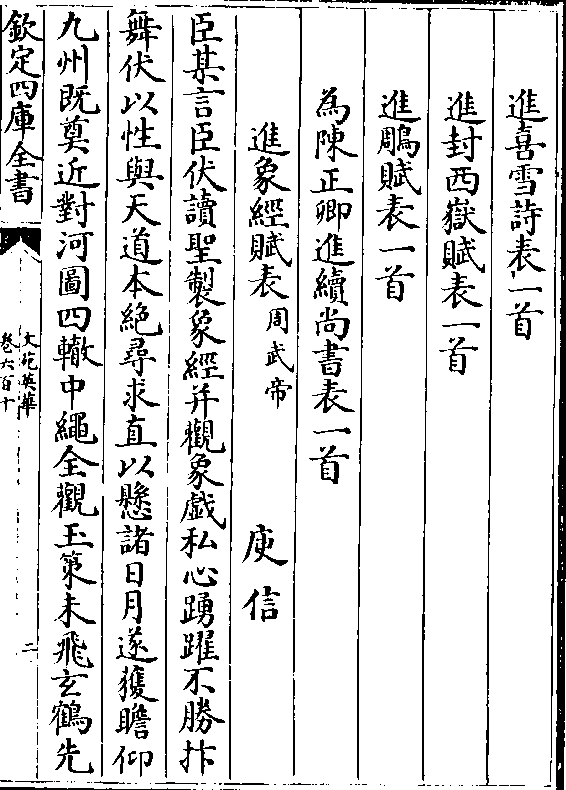 進喜雪詩表一首
進封西嶽賦表一首
進鵰賦表一首
為陳正卿進續尚書表一首
進象經賦表周武帝 庾信
臣某言臣伏讀聖製象經并觀象戱私心踴躍不勝抃
舞伏以性與天道本絶尋求直以懸諸日月遂獲瞻仰
九州既奠近對河圖四轍中繩全觀玉策未飛玄鶴先
欽定四庫全書
文苑英華
卷六百十
二